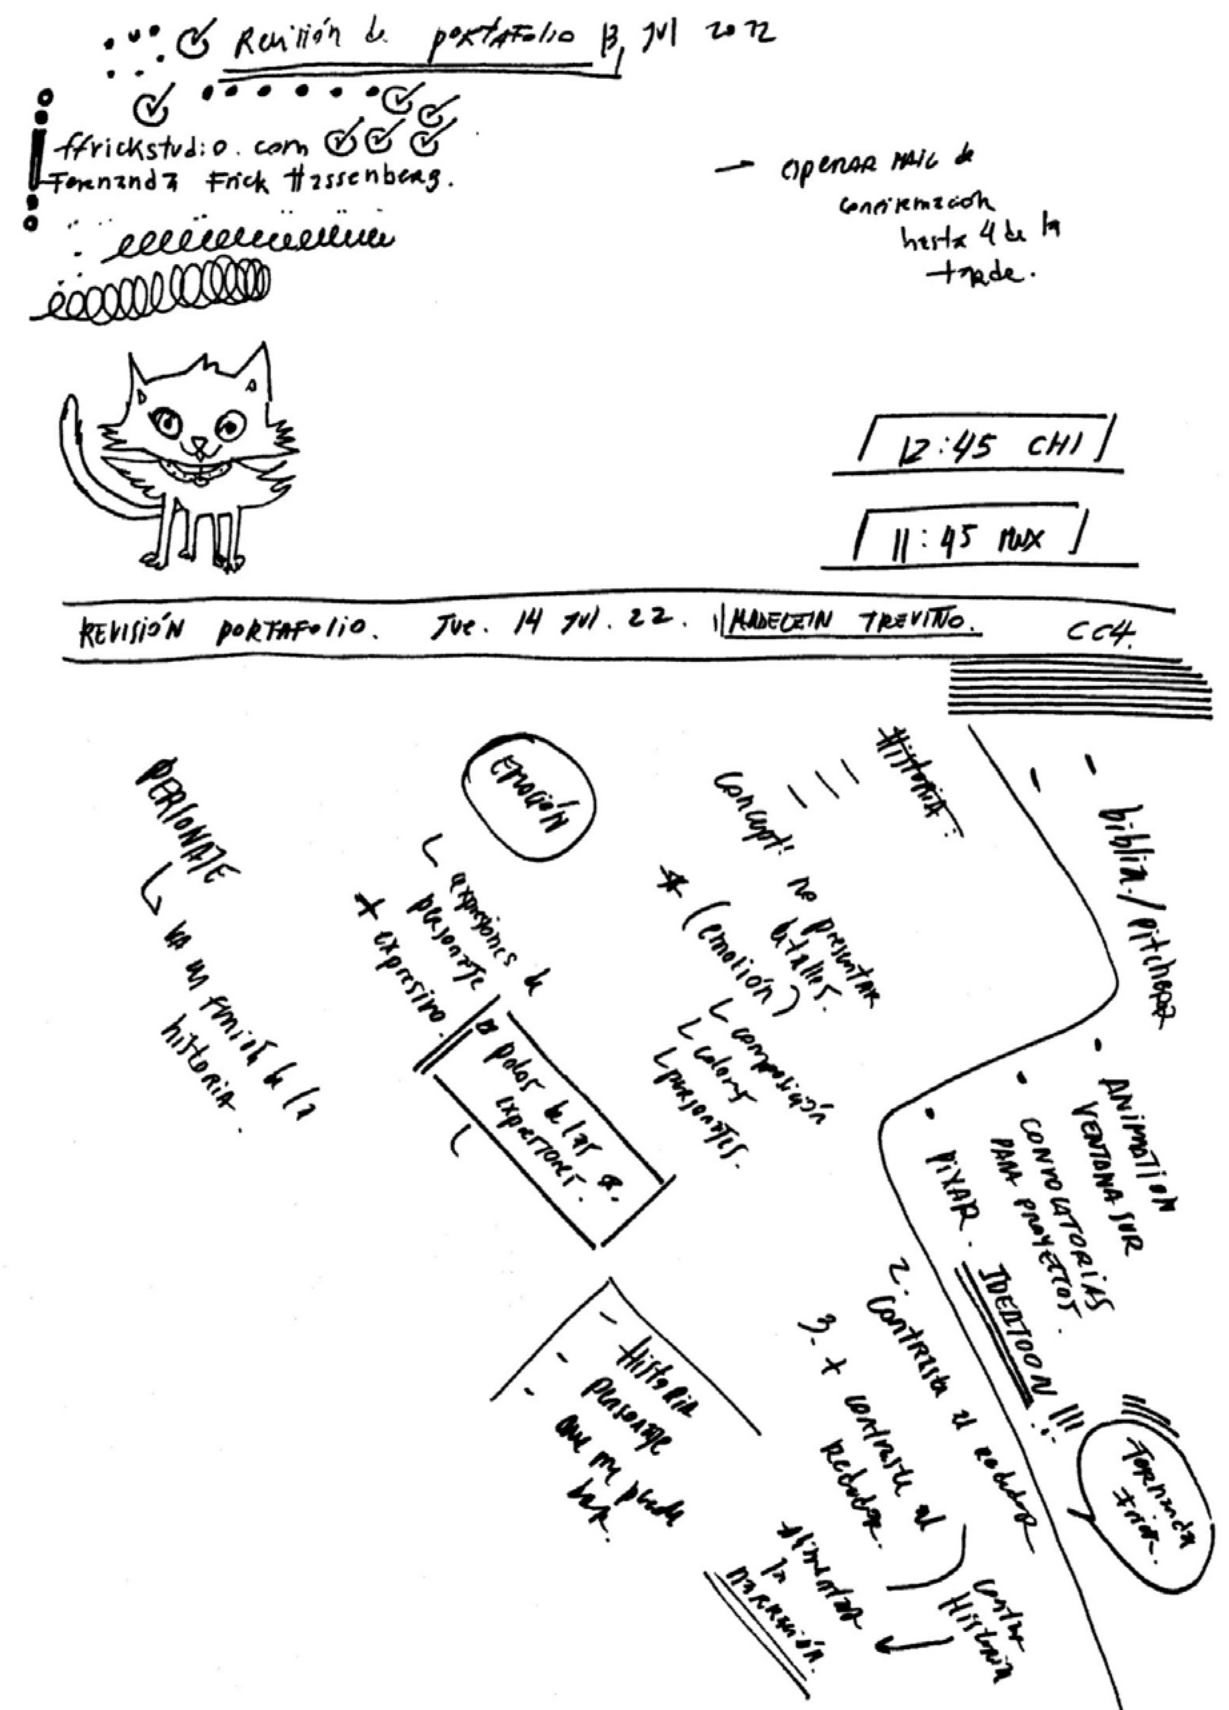 Revisión de portafolio 13, Jul 2022
ffrickstudio.com
Fernanda Frick Hassenberg.
— esperar mail de
confirmación
hasta 4 de la
tarde.
12:45 CHI
11:45 MX
REVISIÓN PORTAFOLIO. Jue. 14 Jul. 22. MADELEIN TREVIÑO. CC4.
PERSONAJE
va en función de la
historia.
EMOCIÓN
expresiones de
personaje
+ expresivo.
polos de las
expresiones.
HISTORIA:
concept: no presentar
batallas.
* (emoción)
composición
colores
personajes.
- biblia / pitch
• ANIMATION
VENTANA SUR
• CONVOCATORIAS
PARA PROYECTOS.
• PIXAR.
IDEATOON !!!
Fernanda
Frick.
2. Contraste al rededor
3. + contraste al
rededor.
contar
Historia
alimentar
la
narración.
- Historia
- personaje
- que me puede
dar.